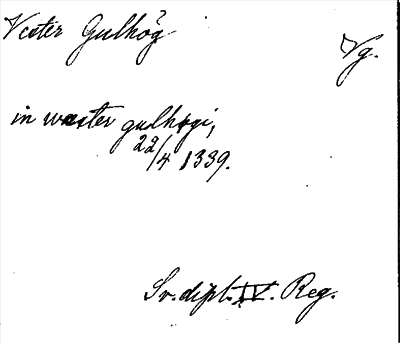 Vester Gulhög
Vg.
in wæster gulhøgi,
22/4 1339.
Sv. dipl. IV. Reg.